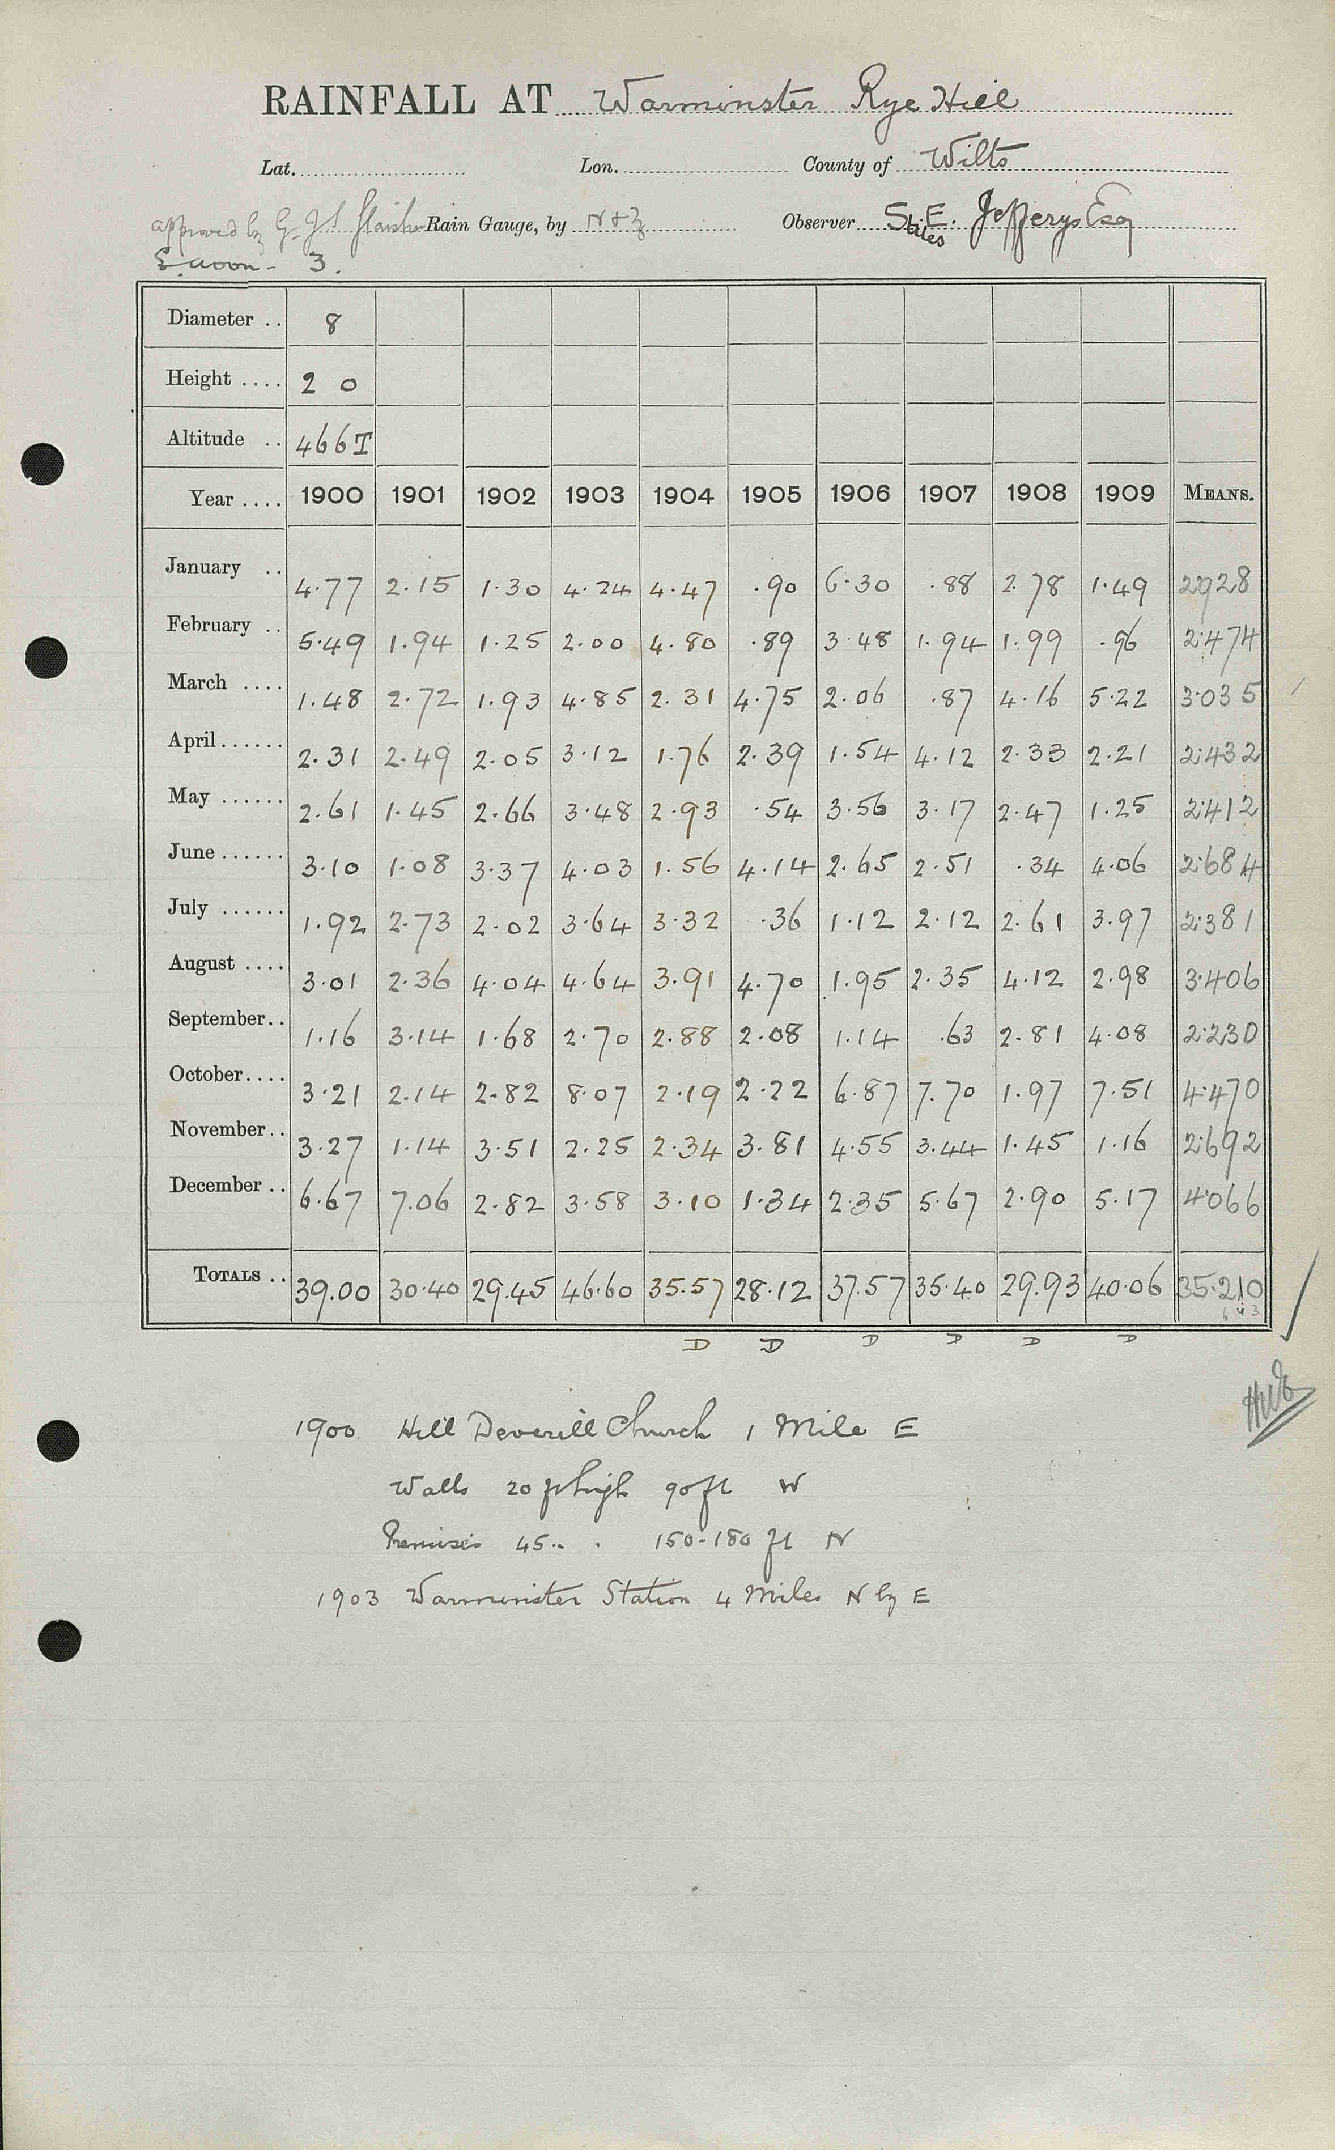 RAINFALL AT Warminster Rye Hill
Lat. Lon. County of Wilts
approved by G. J. S. Glaisher Rain Gauge, by N & Z Observer St. E. Jefferys Esq
Stiles
3.
Diameter .. 8
Height .... 2 0
Altitude .. 466T
Year .... 1900 1901 1902 1903 1904 1905 1906 1907 1908 1909 MEANS.
January .. 4.77 2.15 1.30 4.24 4.47 .90 6.30 .88 2.78 1.49 2.928
February .. 5.49 1.94 1.25 2.00 4.80 .89 3.48 1.94 1.99 .96 2.474
March .... 1.48 2.72 1.93 4.85 2.31 4.75 2.06 .87 4.16 5.22 3.035
April...... 2.31 2.49 2.05 3.12 1.76 2.39 1.54 4.12 2.33 2.21 2.432
May ...... 2.61 1.45 2.66 3.48 2.93 .54 3.56 3.17 2.47 1.25 2.412
June ...... 3.10 1.08 3.37 4.03 1.56 4.14 2.65 2.51 .34 4.06 2.684
July ...... 1.92 2.73 2.02 3.64 3.32 .36 1.12 2.12 2.61 3.97 2.381
August .... 3.01 2.36 4.04 4.64 3.91 4.70 1.95 2.35 4.12 2.98 3.406
September.. 1.16 3.14 1.68 2.70 2.88 2.08 1.14 .63 2.81 4.08 2.230
October.... 3.21 2.14 2.82 8.07 2.19 2.22 6.87 7.70 1.97 7.51 4.470
November.. 3.27 1.14 3.51 2.25 2.34 3.81 4.55 3.44 1.45 1.16 2.692
December .. 6.67 7.06 2.82 3.58 3.10 1.34 2.35 5.67 2.90 5.17 4.066
TOTALS .. 39.00 30.40 29.45 46.60 35.57 28.12 37.57 35.40 29.93 40.06 35.210
D D D D D D
1900 Hill Deverill Church 1 Mile E
Walls 20 ft high 90 ft W
Premises 45 .. . 150-180 ft N
1903 Warminster Station 4 Miles N by E